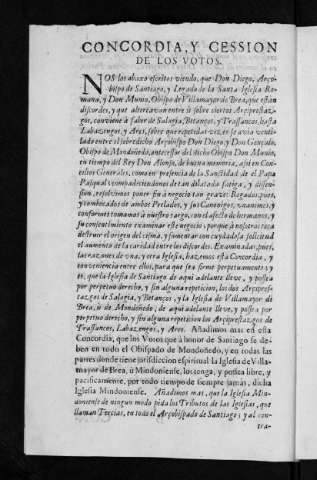 CONCORDIA, Y CESSION
DE LOS VOTOS.
NOS los abaxo escritos viendo, que Don Diego, Arço-
bispo de Santiago, y Legado de la Santa Iglesia Ro-
mana, y Don Munio, Obispo de Villamayor de Brea, que estàn
discordes, y que altercavan entre sì sobre ciertos Arziprestaz-
gos, conviene à saber de Salagia, Betanços, y Trassancos, hasta
Labazengos, y Arros, sobre que repetidas vezes se avia venti-
lado entre el sobredicho Arçobispo Don Diego, y Don Gonçalo,
Obispo de Mondoñedo, antecessor del dicho Obispo Don Munio,
en tiempo del Rey Don Alonso, de buena memoria, assi en Con-
cilios Generales, como en presencia de la Sanctidad de el Papa
Pasqual compadeciendonos de tan dilatada fatiga, y dissen-
sion, resolvimos poner fin à negocio tan grave: Rogados, pues,
y combocados de ambos Prelados, y sus Canonigos, unanimes, y
conformes tomamos à nuestro cargo, con el afecto de hermanos, y
su consentimiento examinar este negocio, porque à nosotros toca
destruir el origen del cisma, y fomentar con cuydado, la solicitud
el aumento de la caridad entre los discordes. Examinadas, pues,
las razones de una, y otra Iglesia, hazemos esta Concordia, y
conveniencia entre ellos, para que sea firme perpetuamente; y
es, que la Iglesia de Santiago de aqui adelante lleve, y possea
por perpetuo derecho, y sin alguna repeticion, los dos Arziprest-
tazgos de Salagia, y Betanços, y la Iglesia de Villamayor de
Brea, ù de Mondoñedo, de aqui adelante lleve, y possea por
perpetuo derecho, y sin alguna repeticion los Arziprestazgos de
Trassancos, Labazengos, y Arros. Añadimos mas en esta
Concordia, que los Votos que à honor de Santiago se de-
ben en todo el Obispado de Mondoñedo, y en todas las
partes donde tiene jurisdiccion espiritual la Iglesia de Villa-
mayor de Brea, ù Mindoniense, los tenga, y possea libre, y
pacificamente, por todo tiempo de siempre jamàs, dicha
Iglesia Mindoniense. Añadimos mas, que la Iglesia Min-
doniense de ningun modo pida los Tributos de las Iglesias, que
llaman Tercias, en todo el Arçobispado de Santiago; y al con-
tra-